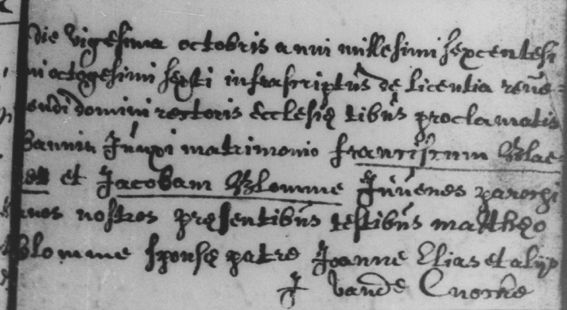 die vigesima octobris anni millesimi sexcentesi
mi octogesimi sexti infrascriptus de licentia reve=
rendi domini rectoris Ecclesiæ tribus proclamatis
bannis Junxi matrimonio franciscum Blae=
et Jacobam Blomme Juvenes parochi
anos nostros præsentibus testibus mattheo
Blomme sponsæ patre Joanne Elias et alijs
J vande